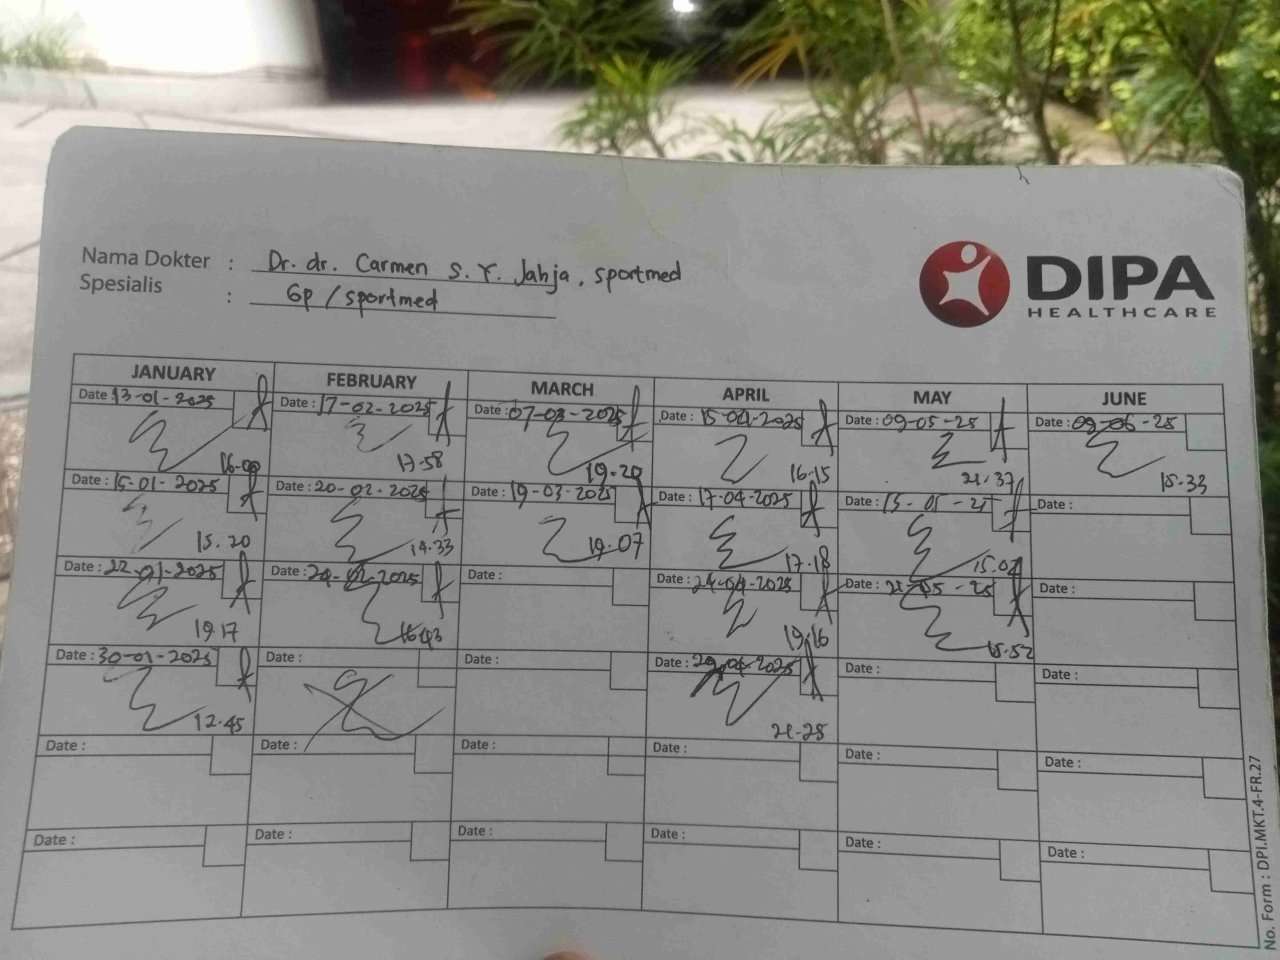 Nama Dokter : Dr. dr. Carmen S. Y. Jahja, sportmed
Spesialis : Gp / sportmed
DIPA
HEALTHCARE
JANUARY FEBRUARY MARCH APRIL MAY JUNE
Date : 13-01-2025 Date : 17-02-2025 Date : 07-03-2025 Date : 15-04-2025 Date : 09-05-25 Date : 09-06-25
16.00 17.58 19.20 16.15 21.37 15.33
Date : 15-01-2025 Date : 20-02-2025 Date : 19-03-2025 Date : 17-04-2025 Date : 13-05-25 Date :
15.20 14.33 19.07 17.18 15.04
Date : 22-01-2025 Date : 24-02-2025 Date : Date : 24-04-2025 Date : 21-05-25 Date :
19.17 16.43 19.16 15.52
Date : 30-01-2025 Date : Date : Date : 29-04-2025 Date : Date :
12.45 21.25
Date : Date : Date : Date : Date : Date :
Date : Date : Date : Date : Date : Date :
No. Form : DPI.MKT.4-FR.27